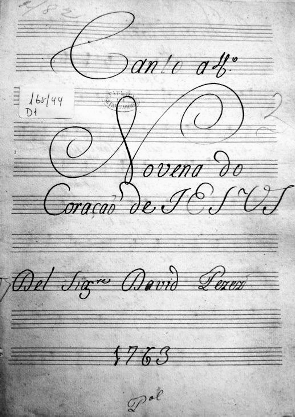 160/44
D1
Canto a 4.º
Novena do
Coração de IESVS
Del Sig.re David Perez
1763